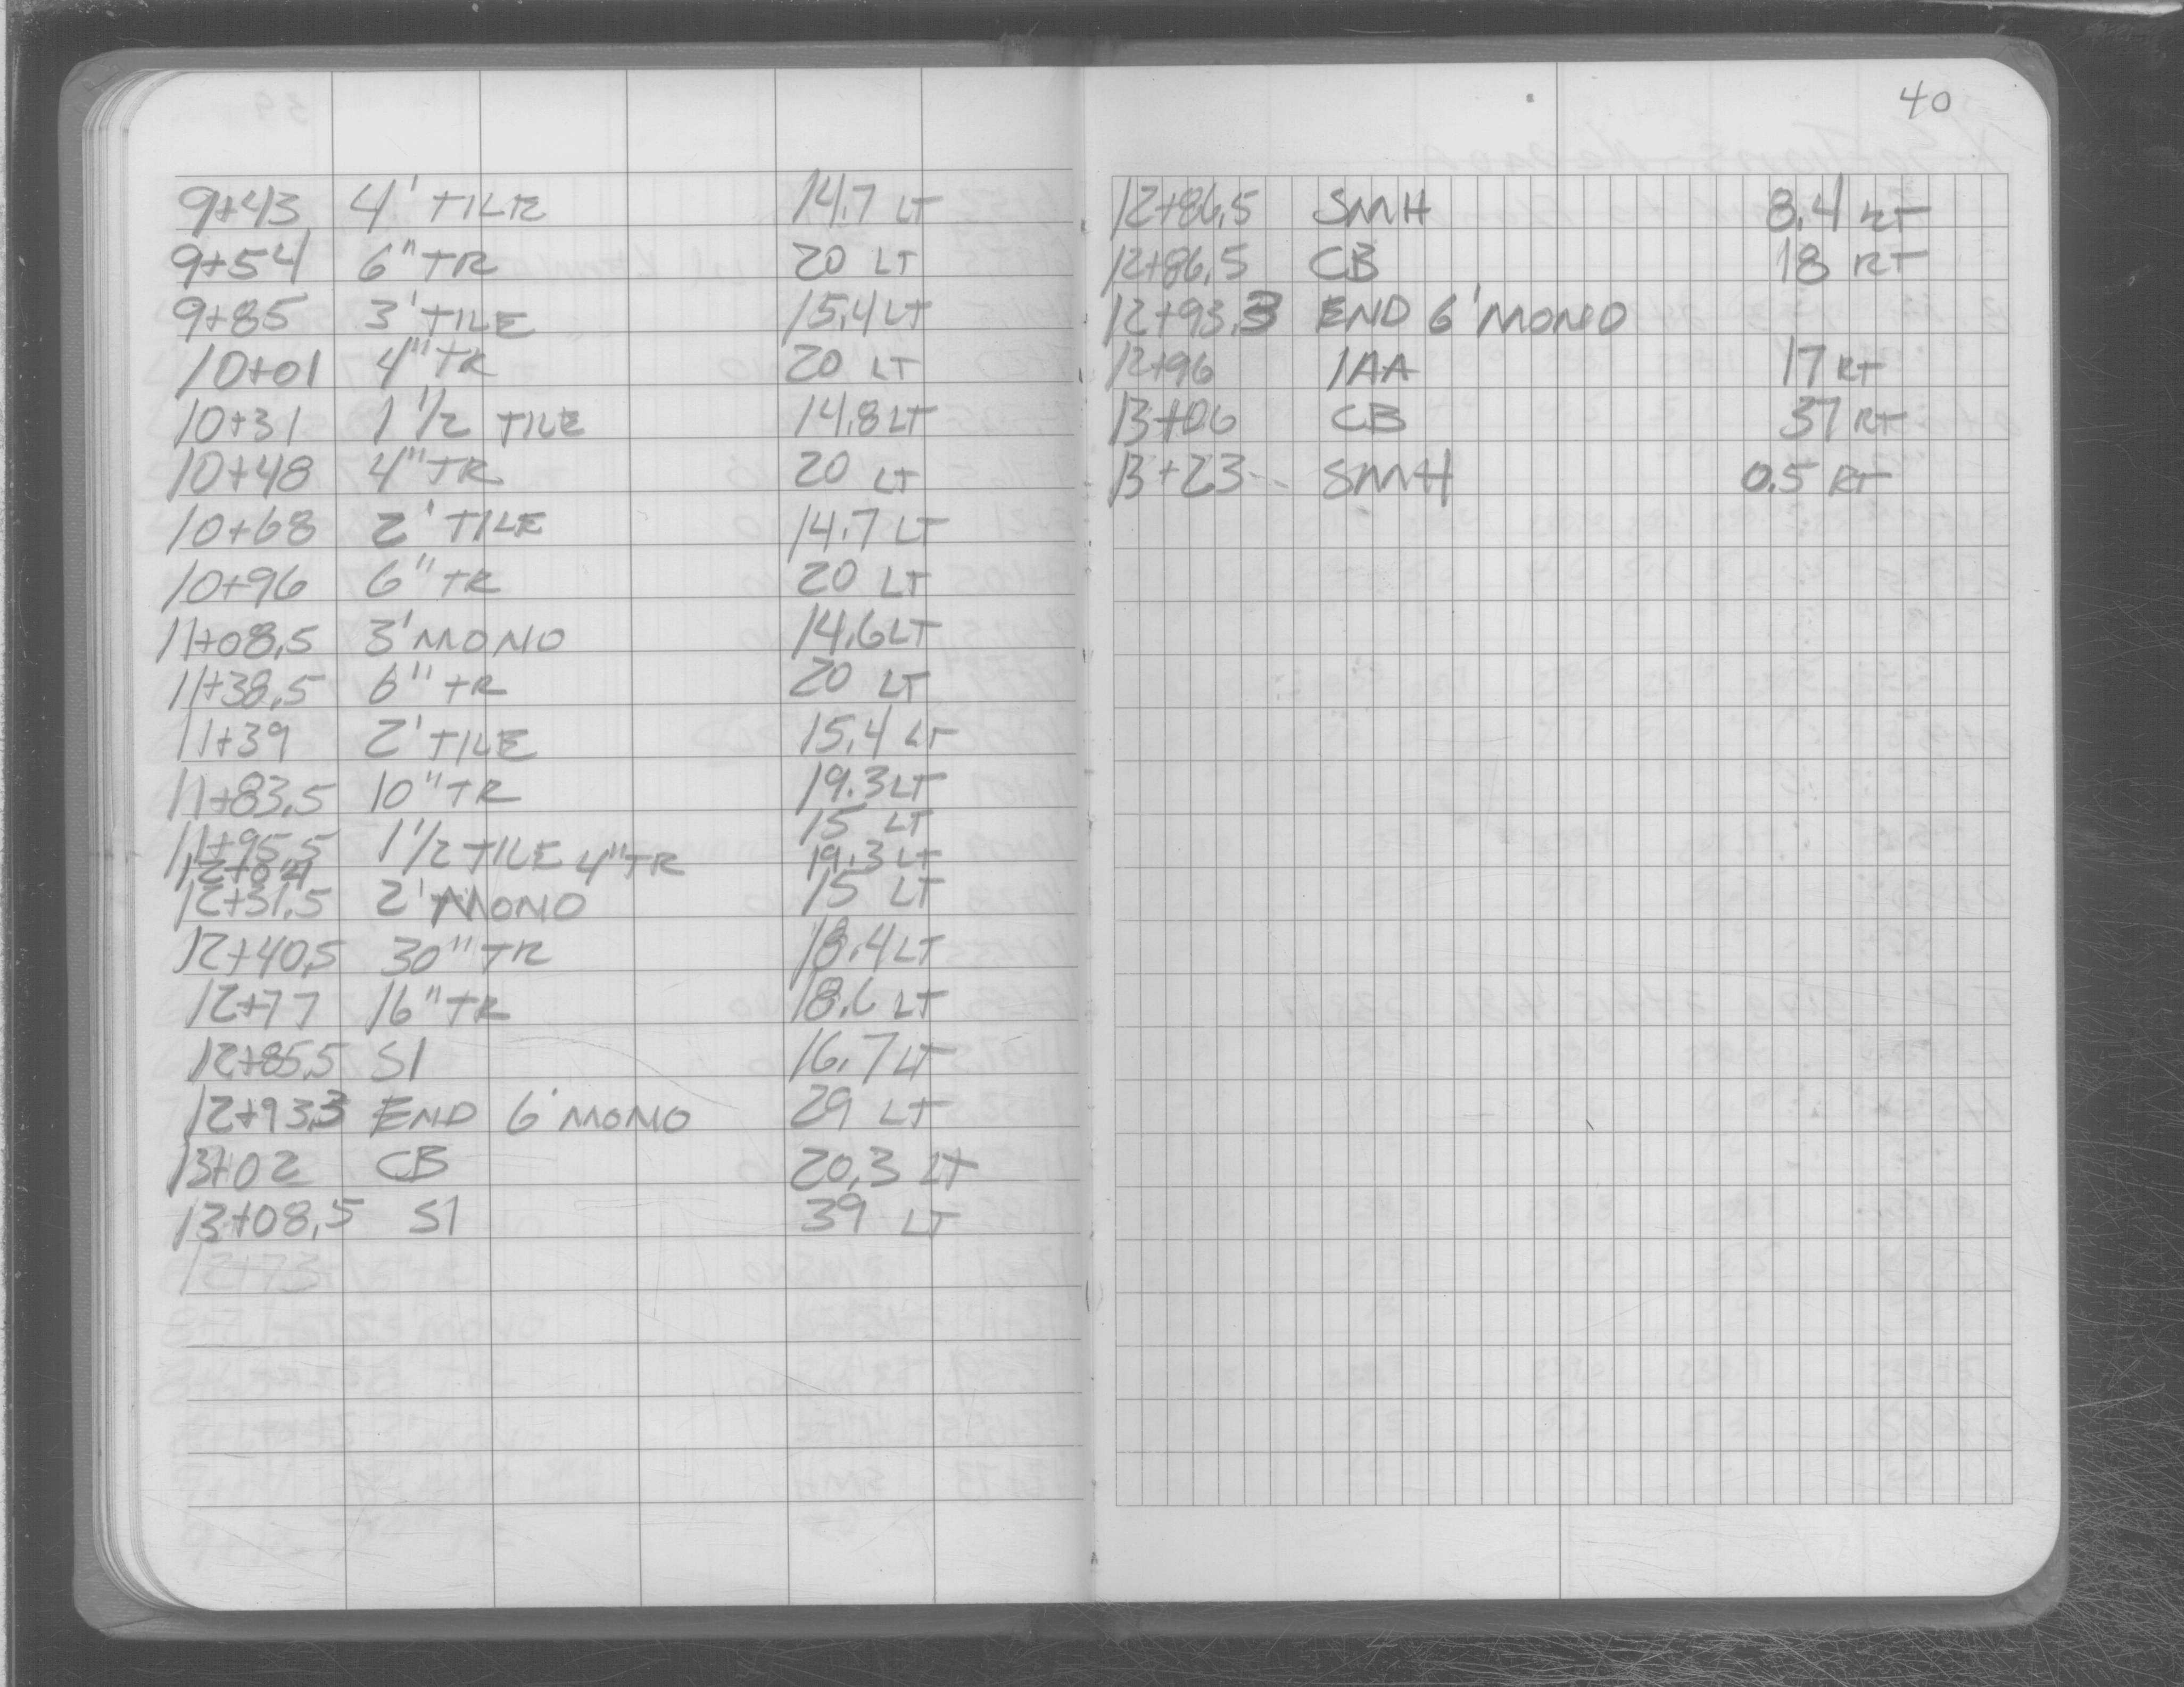 9+43 4' TILE 14.7 LT
9+54 6" TR 20 LT
9+85 3' TILE 15.4 LT
10+01 4" TR 20 LT
10+31 1 1/2 TILE 14.8 LT
10+48 4" TR 20 LT
10+68 2' TILE 14.7 LT
10+96 6" TR 20 LT
11+08.5 3' MONO 14.6 LT
11+38.5 6" TR 20 LT
11+39 2' TILE 15.4 LT
11+83.5 10" TR 19.3 LT
11+95.5 1 1/2 TILE 15 LT
12+04 4" TR 19.3 LT
12+31.5 2' MONO 15 LT
12+40.5 30" TR 18.4 LT
12+77 16" TR 18.6 LT
12+85.5 SI 16.7 LT
12+93.3 END 6' MONO 29 LT
13+02 CB 20.3 LT
13+08.5 SI 39 LT
40
12+86.5 SMH 8.4 RT
12+86.5 CB 18 RT
12+93.3 END 6' MONO
12+96 1AA 17 RT
13+06 CB 37 RT
13+23 SMH 0.5 RT